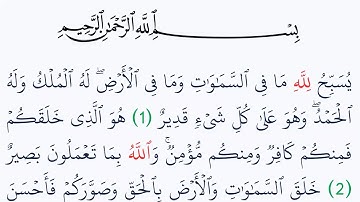 بِسْمِ ٱللَّهِ ٱلرَّحْمَٰنِ ٱلرَّحِيمِ
يُسَبِّحُ لِلَّهِ مَا فِى ٱلسَّمَٰوَٰتِ وَمَا فِى ٱلْأَرْضِ ۖ لَهُ ٱلْمُلْكُ وَلَهُ
ٱلْحَمْدُ ۖ وَهُوَ عَلَىٰ كُلِّ شَىْءٍ قَدِيرٌ (1) هُوَ ٱلَّذِى خَلَقَكُمْ
فَمِنكُمْ كَافِرٌ وَمِنكُم مُّؤْمِنٌ ۚ وَٱللَّهُ بِمَا تَعْمَلُونَ بَصِيرٌ
(2) خَلَقَ ٱلسَّمَٰوَٰتِ وَٱلْأَرْضَ بِٱلْحَقِّ وَصَوَّرَكُمْ فَأَحْسَنَ